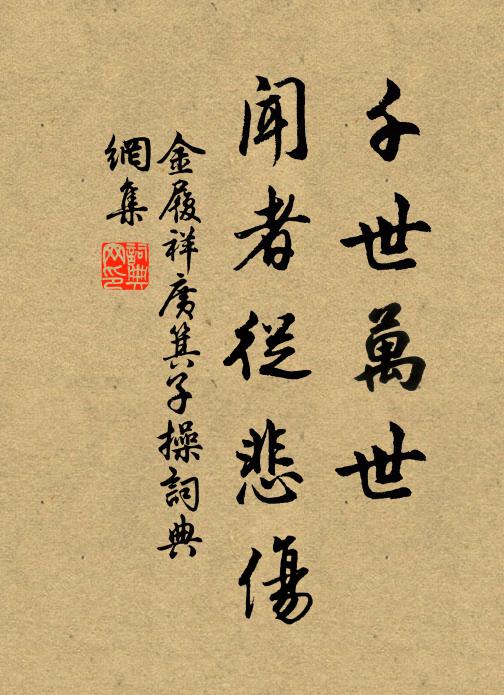 千世萬世
聞者從悲傷
金履祥廣箕子操詞典
網集
詞典网印